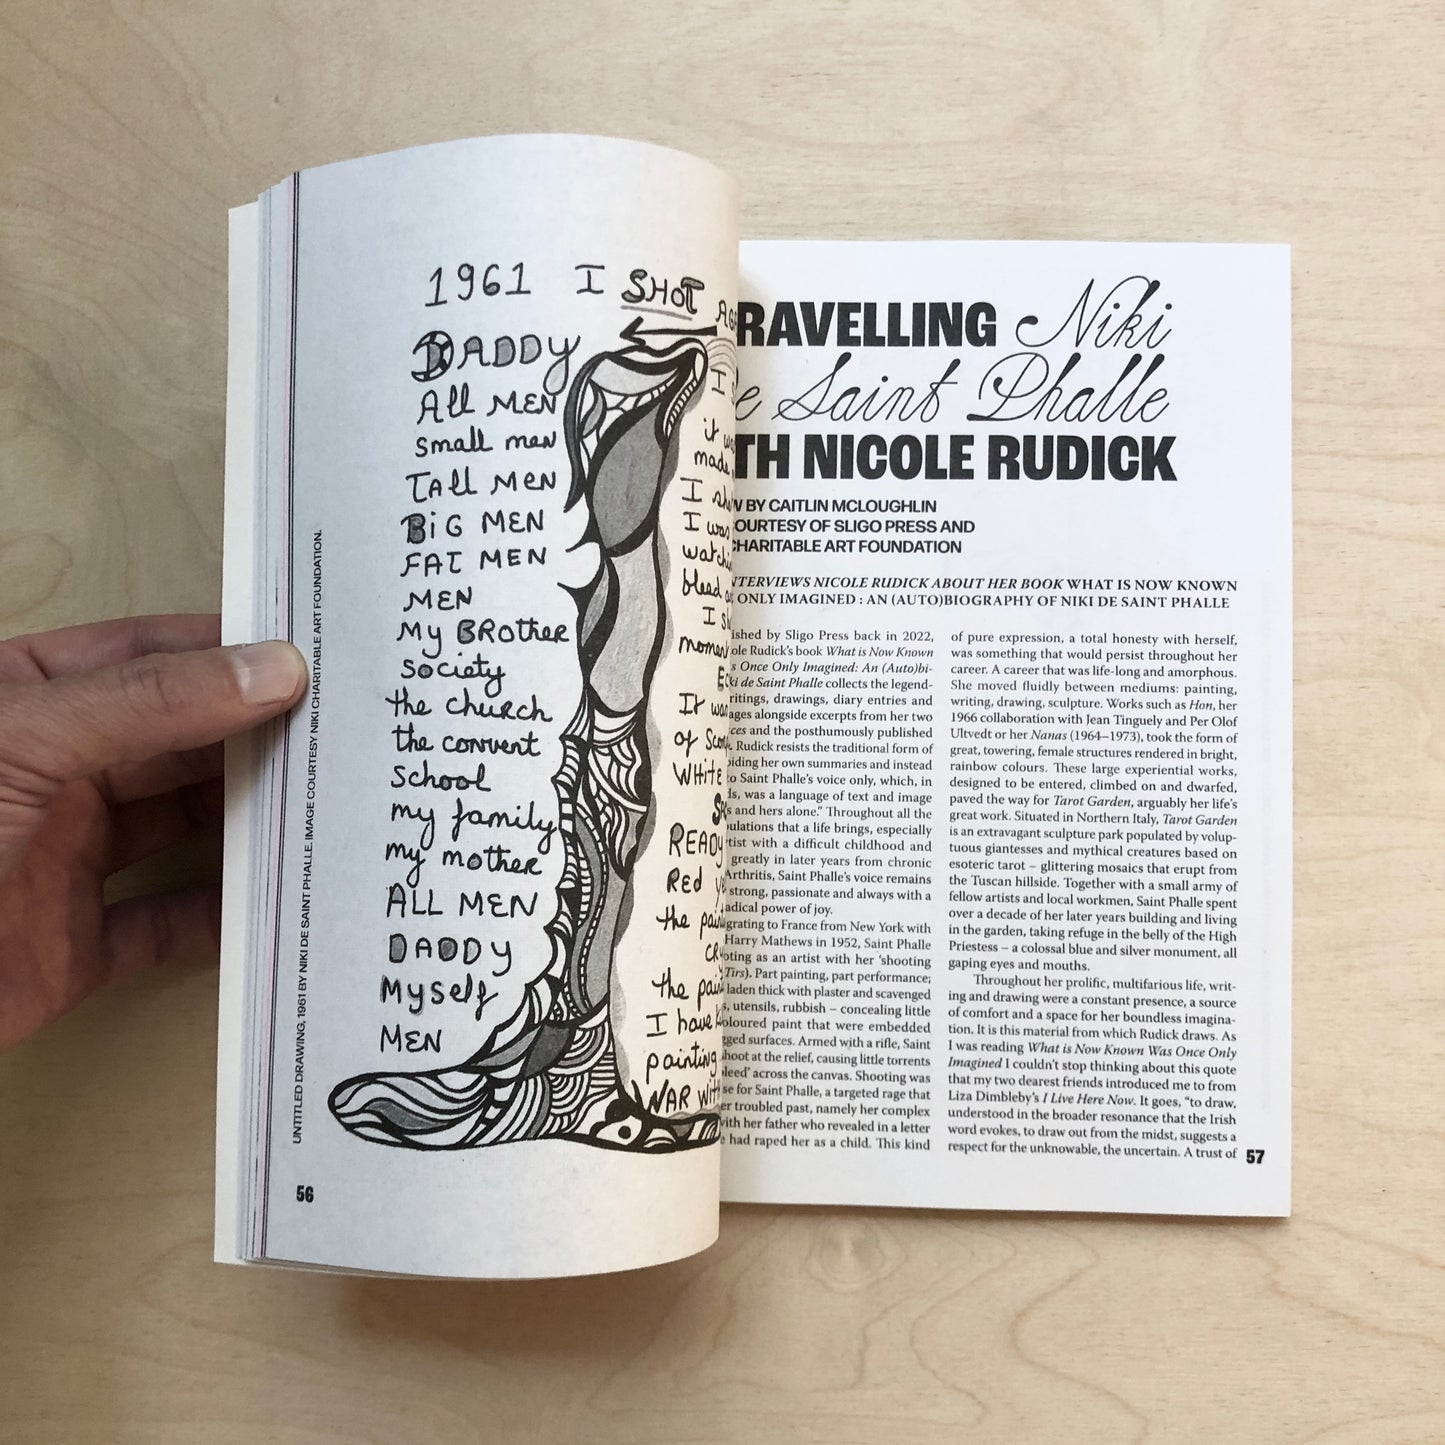 1961 I SHOT
DADDY
All MEN
small men
TAll MEN
BiG MEN
FAT MEN
MEN
My BRother
society
the church
the convent
school
my family
my mother
ALL MEN
DADDY
Myself
MEN
I
it
made
I
I was
watchi
bleed
I
moment
It was
of
WHITE
READY
Red
the
the
I have
painting
WAR
UNTITLED DRAWING, 1961 BY NIKI DE SAINT PHALLE. IMAGE COURTESY NIKI CHARITABLE ART FOUNDATION.
56
RAVELLING Niki
e Saint Phalle
TH NICOLE RUDICK
W BY CAITLIN MCLOUGHLIN
OURTESY OF SLIGO PRESS AND
CHARITABLE ART FOUNDATION
NTERVIEWS NICOLE RUDICK ABOUT HER BOOK WHAT IS NOW KNOWN
ONLY IMAGINED : AN (AUTO)BIOGRAPHY OF NIKI DE SAINT PHALLE
ished by Sligo Press back in 2022,
ole Rudick's book What is Now Known
s Once Only Imagined: An (Auto)bi-
ki de Saint Phalle collects the legend-
ritings, drawings, diary entries and
ages alongside excerpts from her two
ces and the posthumously published
. Rudick resists the traditional form of
iding her own summaries and instead
to Saint Phalle's voice only, which, in
ds, was a language of text and image
s and hers alone." Throughout all the
ulations that a life brings, especially
tist with a difficult childhood and
greatly in later years from chronic
Arthritis, Saint Phalle's voice remains
strong, passionate and always with a
adical power of joy.
grating to France from New York with
Harry Mathews in 1952, Saint Phalle
oting as an artist with her 'shooting
Tirs). Part painting, part performance;
laden thick with plaster and scavenged
s, utensils, rubbish – concealing little
oloured paint that were embedded
gged surfaces. Armed with a rifle, Saint
hoot at the relief, causing little torrents
leed' across the canvas. Shooting was
se for Saint Phalle, a targeted rage that
er troubled past, namely her complex
with her father who revealed in a letter
e had raped her as a child. This kind
of pure expression, a total honesty with herself,
was something that would persist throughout her
career. A career that was life-long and amorphous.
She moved fluidly between mediums: painting,
writing, drawing, sculpture. Works such as Hon, her
1966 collaboration with Jean Tinguely and Per Olof
Ultvedt or her Nanas (1964–1973), took the form of
great, towering, female structures rendered in bright,
rainbow colours. These large experiential works,
designed to be entered, climbed on and dwarfed,
paved the way for Tarot Garden, arguably her life's
great work. Situated in Northern Italy, Tarot Garden
is an extravagant sculpture park populated by volup-
tuous giantesses and mythical creatures based on
esoteric tarot – glittering mosaics that erupt from
the Tuscan hillside. Together with a small army of
fellow artists and local workmen, Saint Phalle spent
over a decade of her later years building and living
in the garden, taking refuge in the belly of the High
Priestess – a colossal blue and silver monument, all
gaping eyes and mouths.
Throughout her prolific, multifarious life, writ-
ing and drawing were a constant presence, a source
of comfort and a space for her boundless imagina-
tion. It is this material from which Rudick draws. As
I was reading What is Now Known Was Once Only
Imagined I couldn't stop thinking about this quote
that my two dearest friends introduced me to from
Liza Dimbleby's I Live Here Now. It goes, "to draw,
understood in the broader resonance that the Irish
word evokes, to draw out from the midst, suggests a
respect for the unknowable, the uncertain. A trust of
57